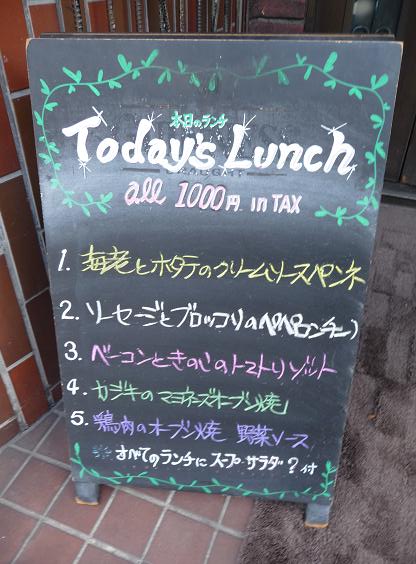 本日のランチ
Today's Lunch
all 1000円 in TAX
1. 海老とホタテのクリームソースペンネ
2. ソーセージとブロッコリのペペロンチーノ
3. ベーコンときのこのトマトリゾット
4. カジキのマヨネーズオーブン焼
5. 鶏肉のオーブン焼 野菜ソース
※すべてのランチにスープ・サラダ?付